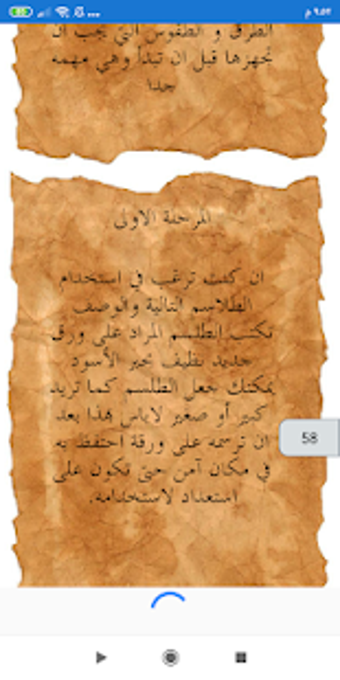 ٩:٥٢ م
الطرق و الطقوس التي يجب ان
تجهزها قبل ان تبدأ وهي مهمه
جدا
المرحلة الاولى
ان كنت ترغب في استخدام
الطلاسم التالية والوصف
تكتب الطلسم المراد على ورق
جديد نظيف بحبر الأسود
يمكنك جعل الطلسم كما تريد
كبير أو صغير لاباس بهذا بعد
ان ترسمه على ورقة احتفظ به
في مكان آمن حتى تكون على
استعداد لاستخدامه.
58